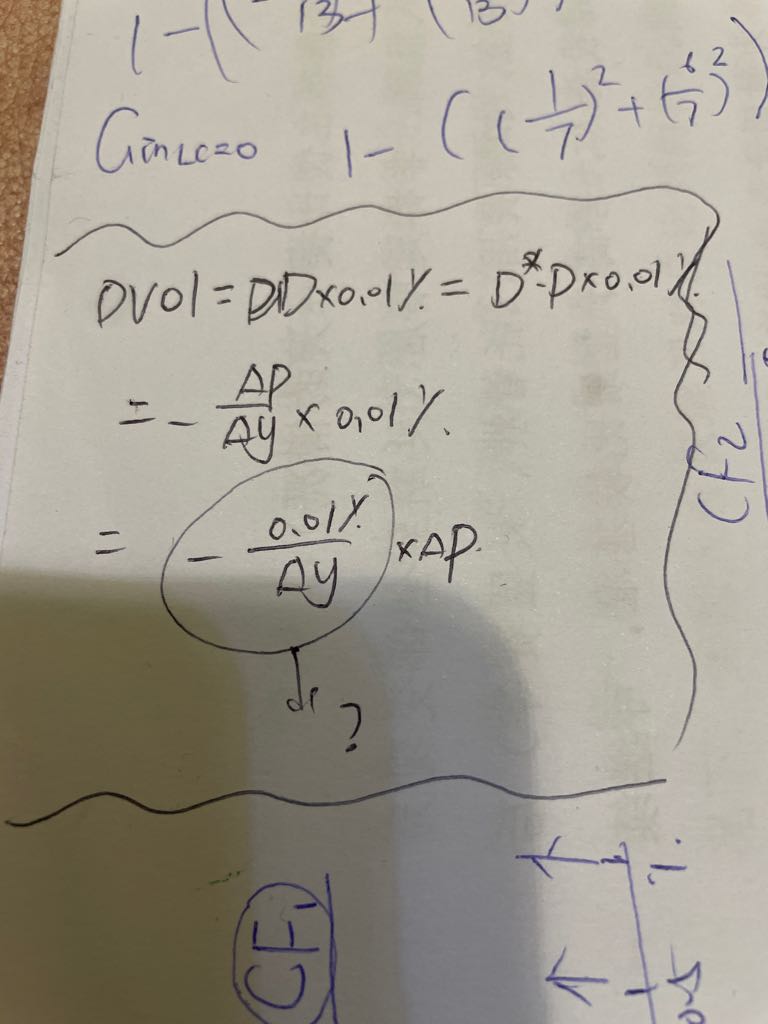 1 - ((
13
(13
Gini LC=0 1 - ((1/7)² + (6/7)²)
DV01 = DD×0.01% = D*·P×0.01%
= - ΔP/Δy × 0.01%.
= - 0.01%/Δy × ΔP.
?
CF2
CF1
1.
0.5